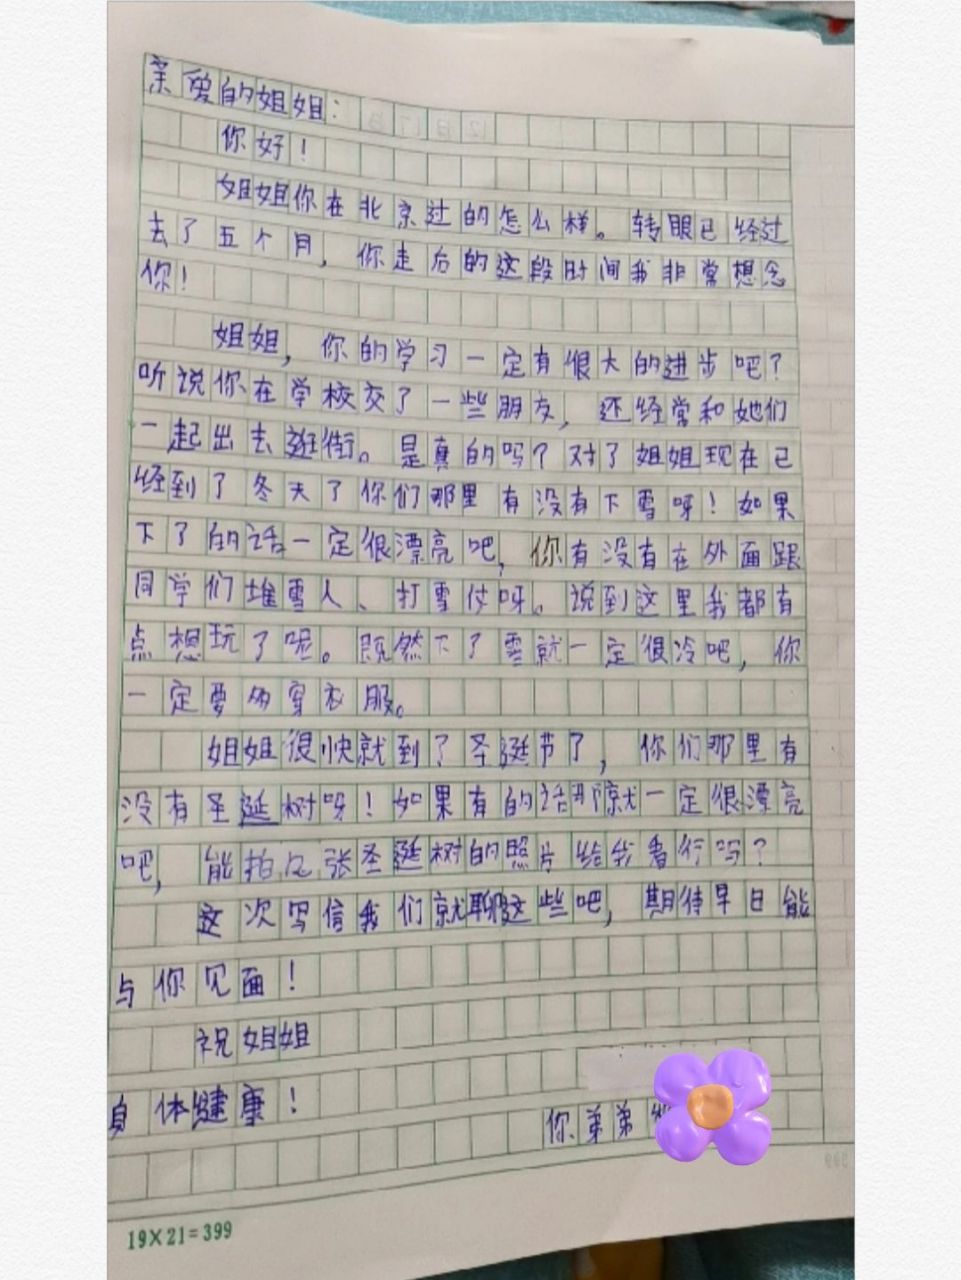 亲爱的姐姐：
你好！
姐姐你在北京过的怎么样。转眼已经过
去了五个月，你走后的这段时间我非常想念
你！
姐姐，你的学习一定有很大的进步吧？
听说你在学校交了一些朋友，还经常和她们
一起出去逛街。是真的吗？对了姐姐现在已
经到了冬天了你们那里有没有下雪呀！如果
下了的话一定很漂亮吧，你有没有在外面跟
同学们堆雪人、打雪仗呀。说到这里我都有
点想玩了呢。既然下了雪就一定很冷吧，你
一定要多穿衣服。
姐姐很快就到了圣诞节了，你们那里有
没有圣延树呀！如果有的话那就一定很漂亮
吧，能拍几张圣诞树的照片给我看行吗？
这次写信我们就聊这些吧，期待早日能
与你见面！
祝姐姐
身体健康！
你弟弟
19×21=399